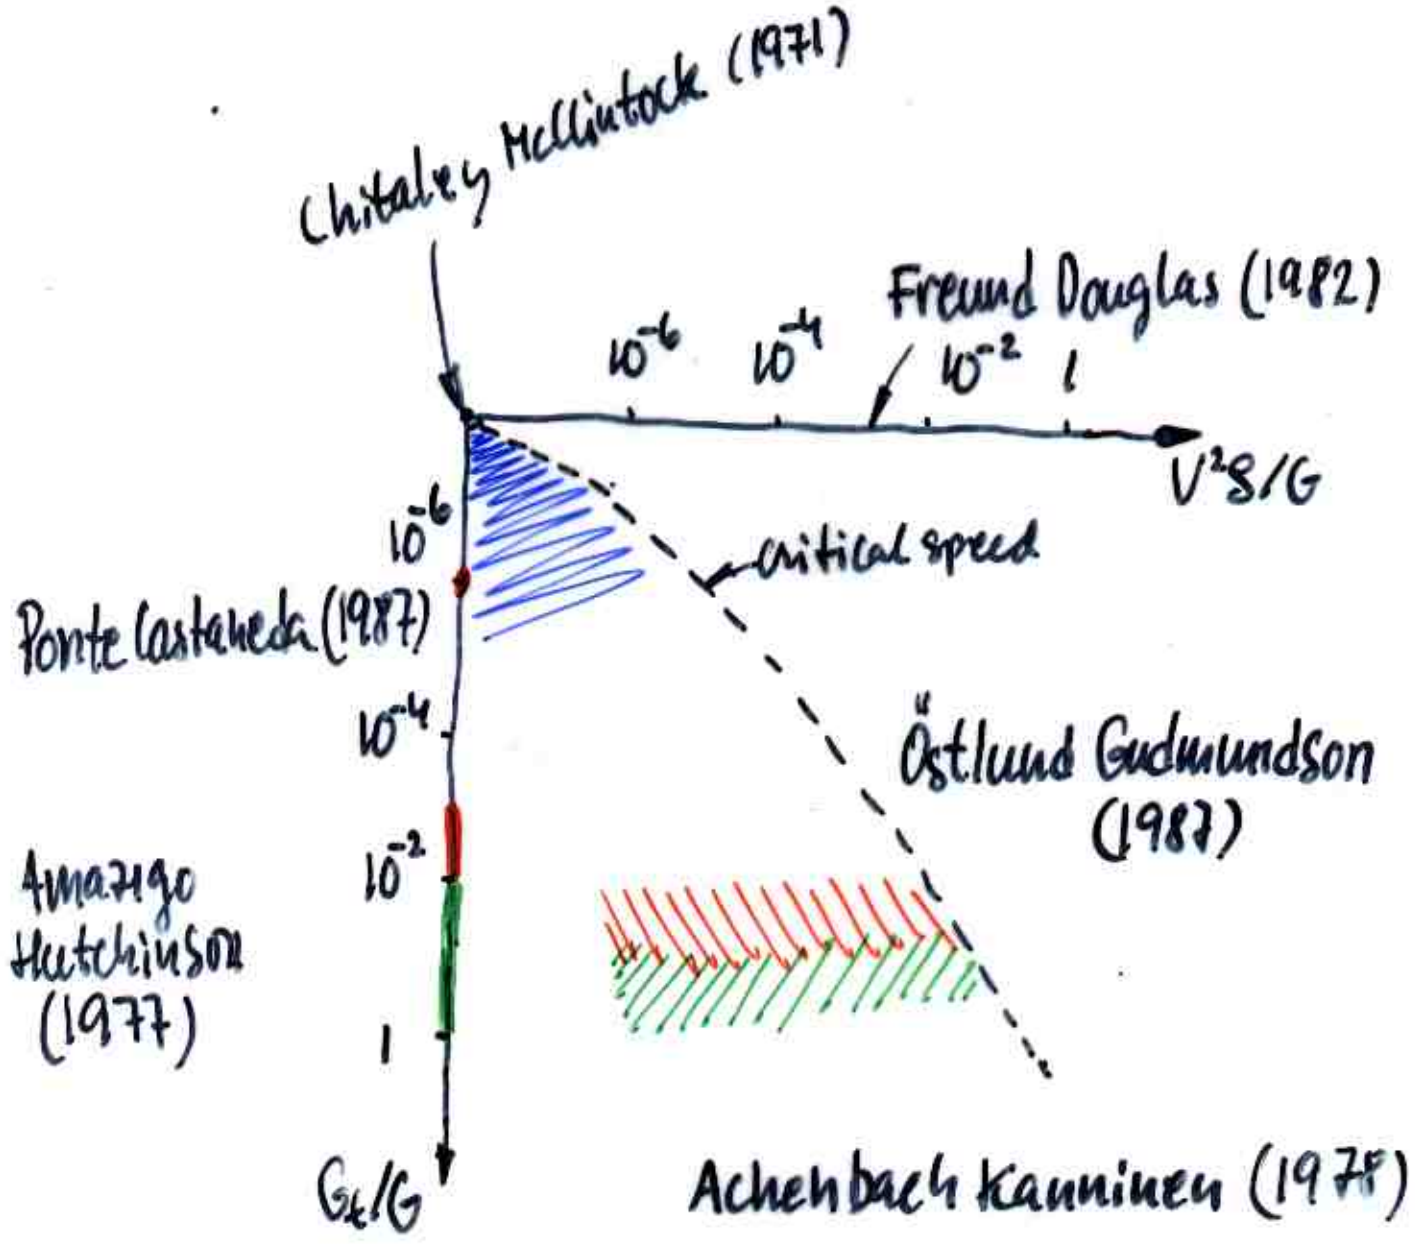 Chitaley McClintock (1971)
Freund Douglas (1982)
10⁻⁶ 10⁻⁴ 10⁻² 1
V²S/G
10⁻⁶
critical speed
Ponte Castaneda (1987)
10⁻⁴
Östlund Gudmundson
(1987)
10⁻²
Amazigo
Hutchinson
(1977)
1
Gₜ/G
Achenbach Kanninen (1978)